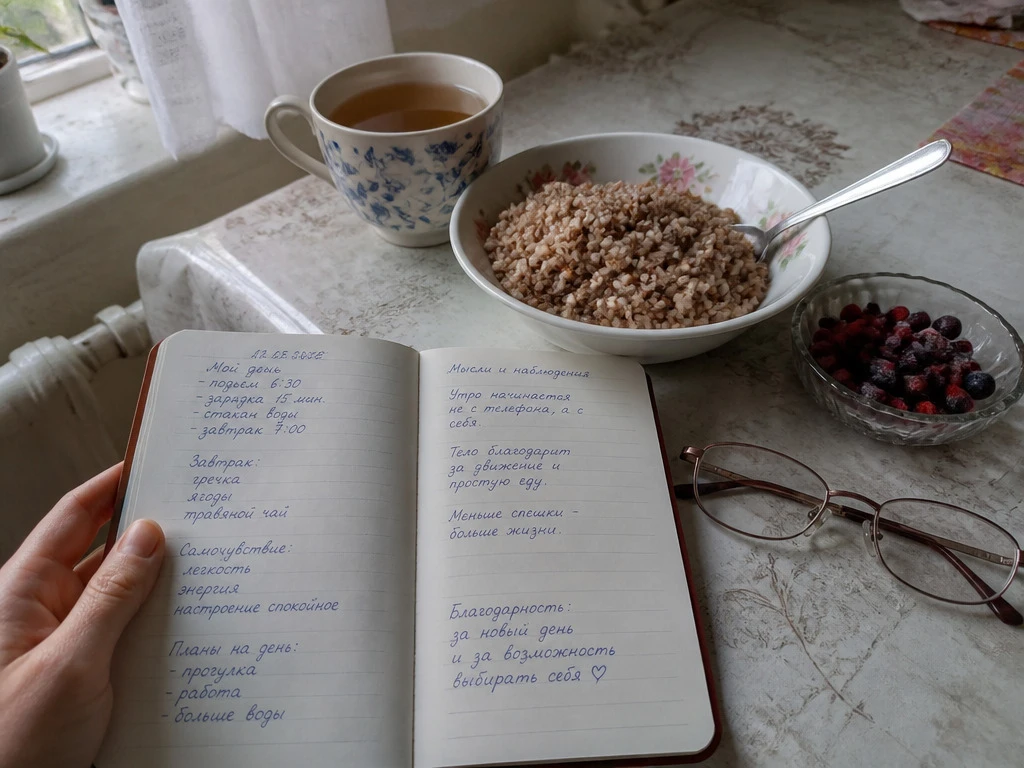 Мой день
- подъём 6:30
- зарядка 15 мин.
- стакан воды
- завтрак 7:00
Завтрак:
гречка
ягоды
травяной чай
Самочувствие:
лёгкость
энергия
настроение спокойное
Планы на день:
- прогулка
- работа
- больше воды
Мысли и наблюдения
Утро начинается
не с телефона, а с
себя.
Тело благодарит
за движение и
простую еду.
Меньше спешки –
больше жизни.
Благодарность:
за новый день
и за возможность
выбирать себя ♡